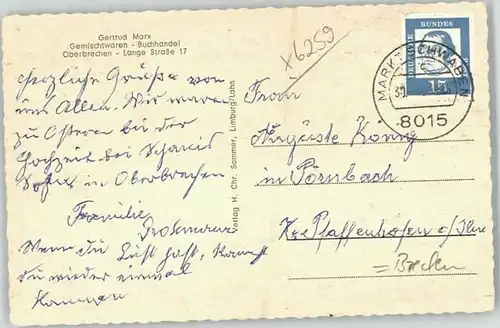 Gertrud Marx
Gemischtwaren - Buchhandel
Oberbrechen - Lange Straße 17
x6259
herzliche Grüße von
uns Allen. Wir waren
zu Ostern bei der
Hochzeit bei
in Oberbrechen
Familie
Wenn du Lust hast, kannst
du wieder einmal
kommen
Verlag H. Chr. Sommer, Limburg/Lahn
DEUTSCHE BUNDESPOST
15
MARKT SCHWABEN
8015
Frau
Auguste König
in Pörnbach
Kr. Pfaffenhofen a/Ilm